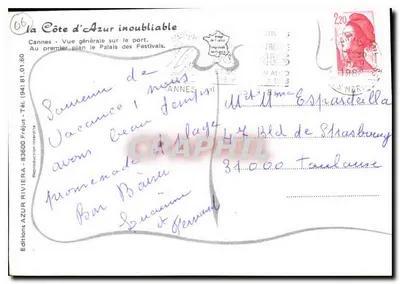 06
la Côte d'Azur inoubliable
Cannes - Vue générale sur le port.
Au premier plan le Palais des Festivals.
2,20
CANNES
Souvenir de
Vacances, nous
avons beau temps
promenade plage
Bon Baiser
Lucienne
et Fernand
Mr Mme Espardeilla
47 Bld de Strasbourg
31000 Toulouse
Editions AZUR RIVIERA - 83600 Fréjus - Tél. (94) 81.01.80
Reproduction interdite